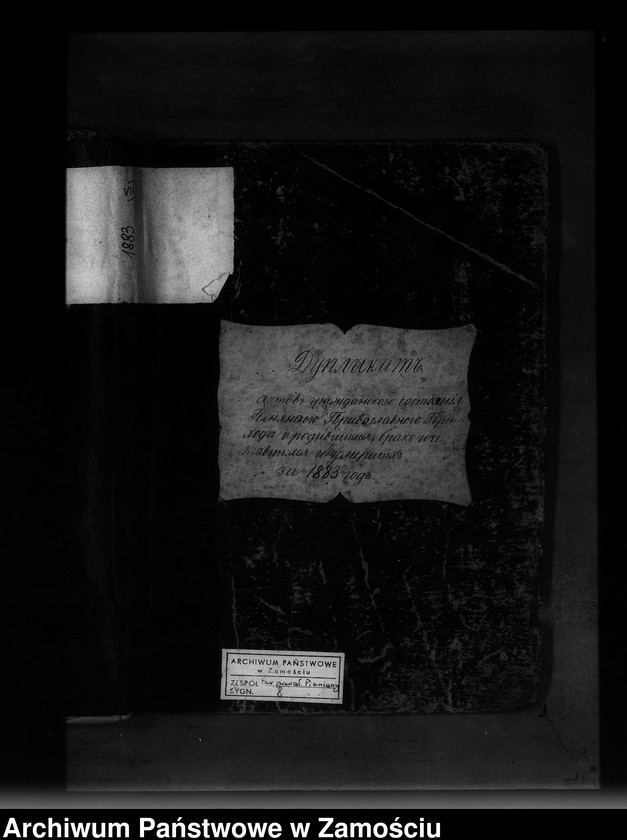 1883
(VII)
Дупликатъ
актовъ гражданскаго состоянія
Православнаго При-
хода о родившихся, бракосоче-
тавшихся и умершихъ
за 1883 годъ.
ARCHIWUM PAŃSTWOWE
w Zamościu
ZESPÓŁ
SYGN. 8
Archiwum Państwowe w Zamościu